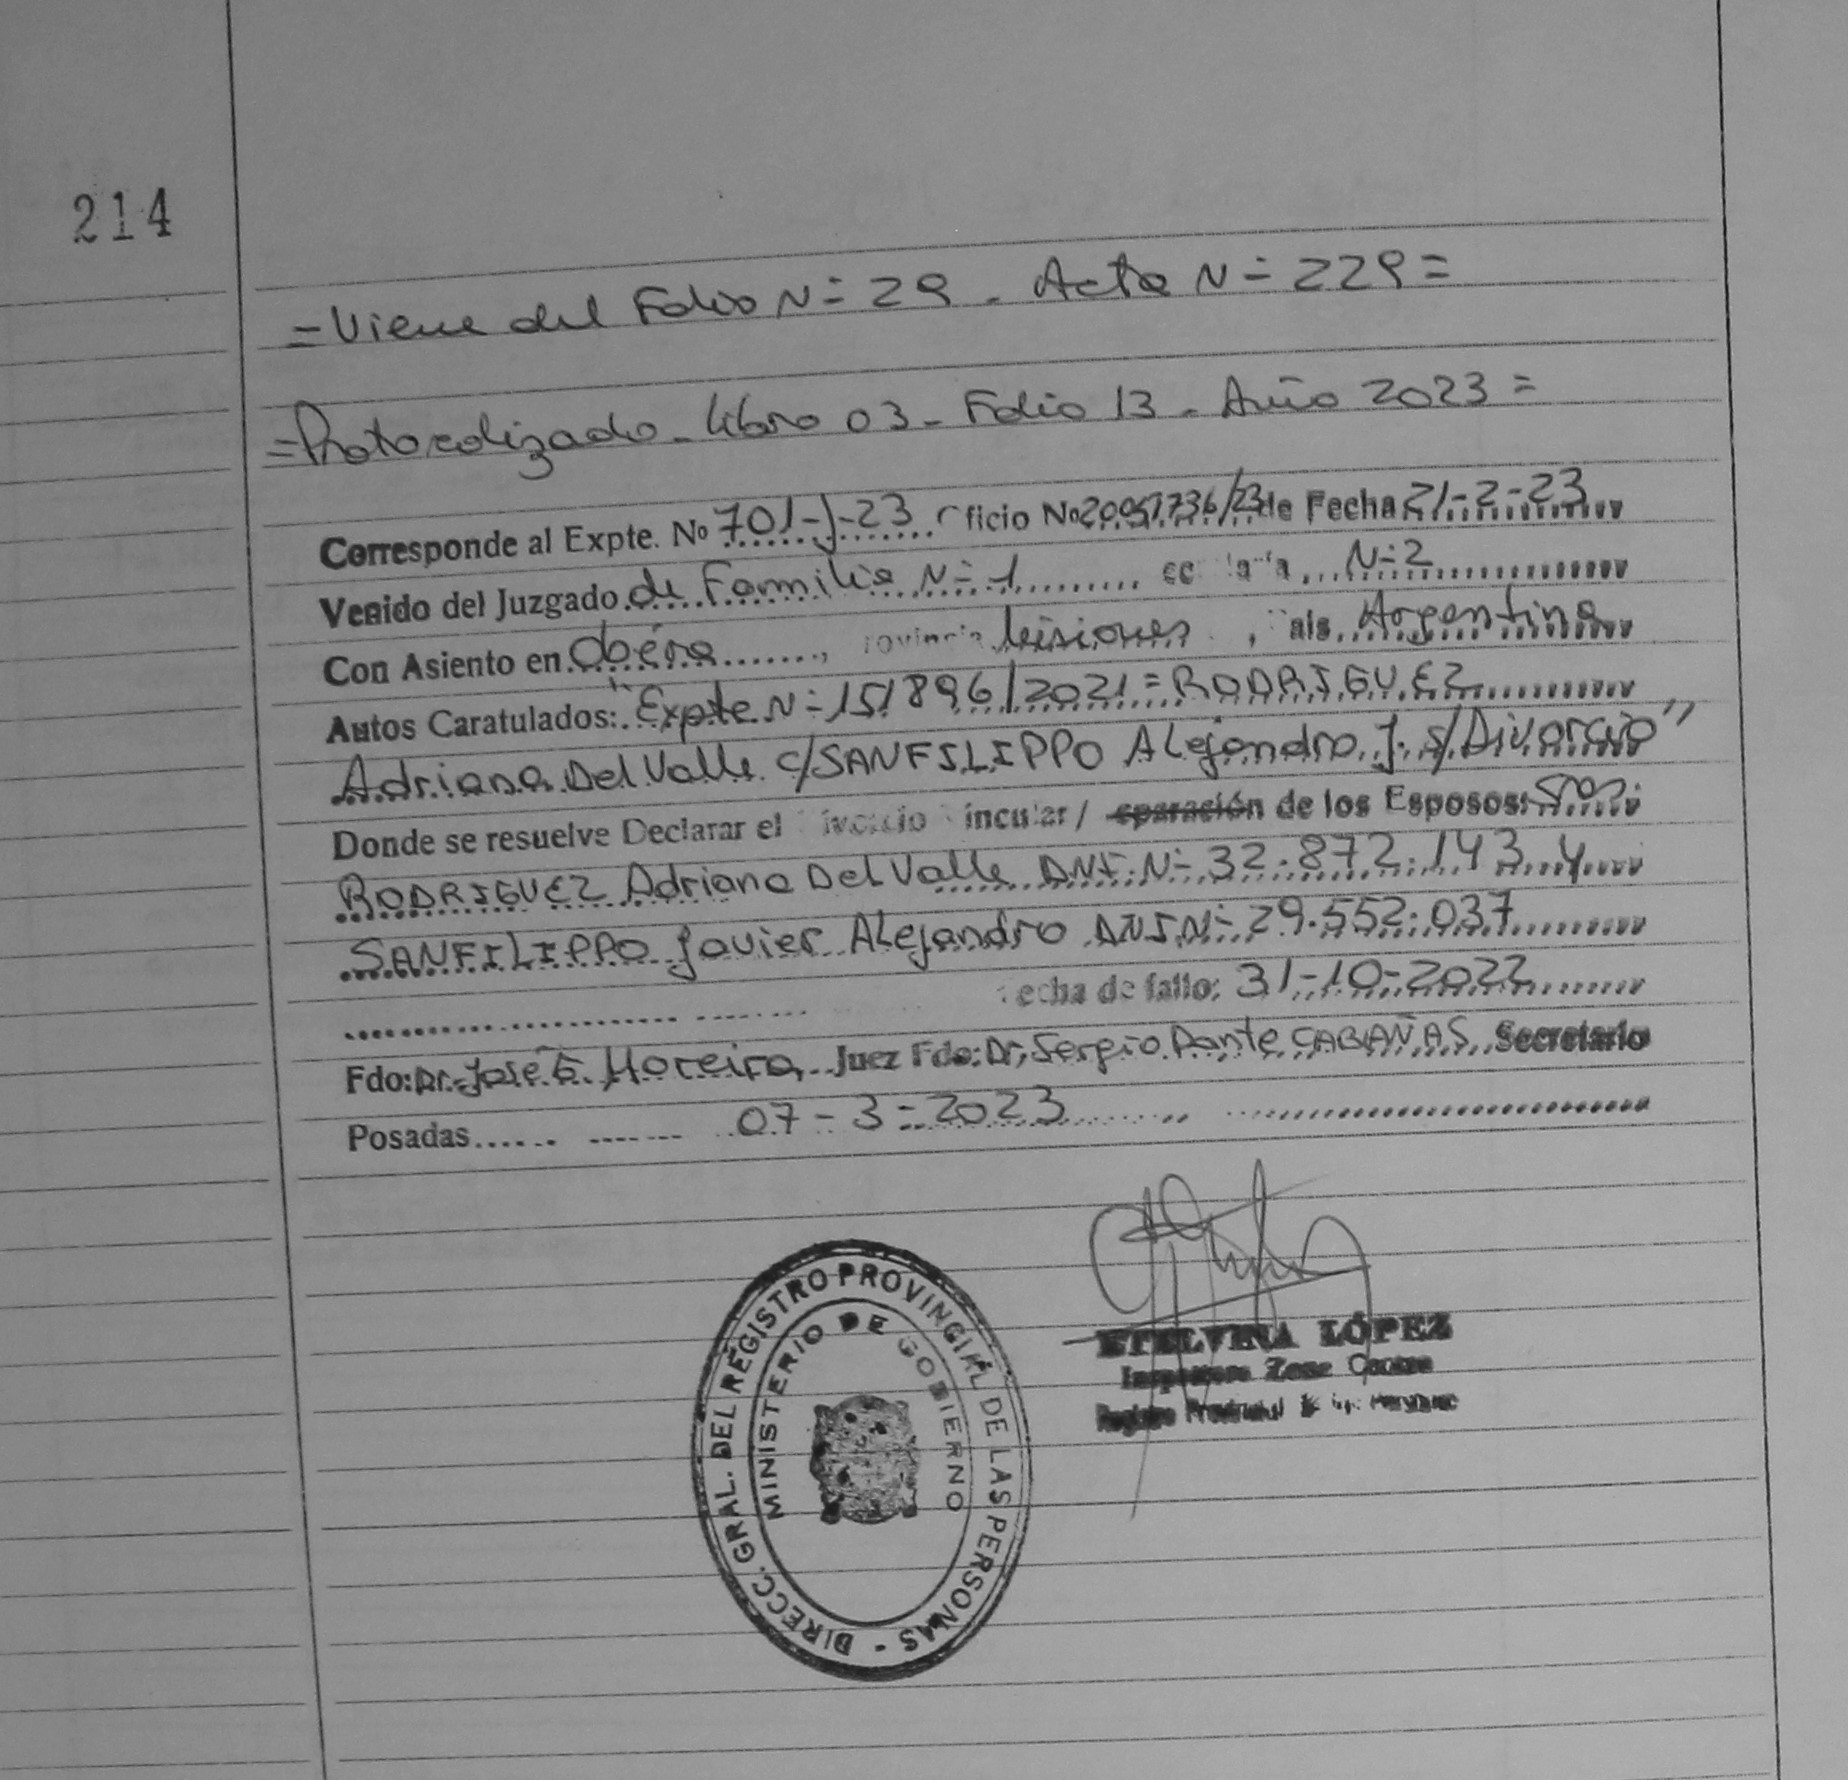 214
=Viene del Folio N= 29 - Acta N= 229=
=Protocolizado - Libro 03 - Folio 13 - Año 2023=
Corresponde al Expte. Nº 701-J-23 ficio Nº 20051736/23 de Fecha 21-2-23
Venido del Juzgado de Familia N=1 N=2
Con Asiento en Oberá, rovincia Misiones, aís Argentina
Autos Caratulados: "Expte N=151896/2021=RODRIGUEZ
Adriana Del Valle c/SANFILIPPO Alejandro J. s/Divorcio"
Donde se resuelve Declarar el ivorcio incular / eparación de los Esposos:
RODRIGUEZ Adriana Del Valle DNI N=32.872.143 y
SANFILIPPO Javier Alejandro DNI N=29.552.037
echa de fallo: 31-10-2022
Fdo: Dr. José G. Moreira Juez Fdo: Dr. Sergio Dante CABAÑAS Secretario
Posadas 07-3-2023
DIRECC. GRAL. DEL REGISTRO PROVINCIAL DE LAS PERSONAS -
MINISTERIO DE GOBIERNO
ETELVINA LÓPEZ
Inspectora Zona Centro
Registro Provincial